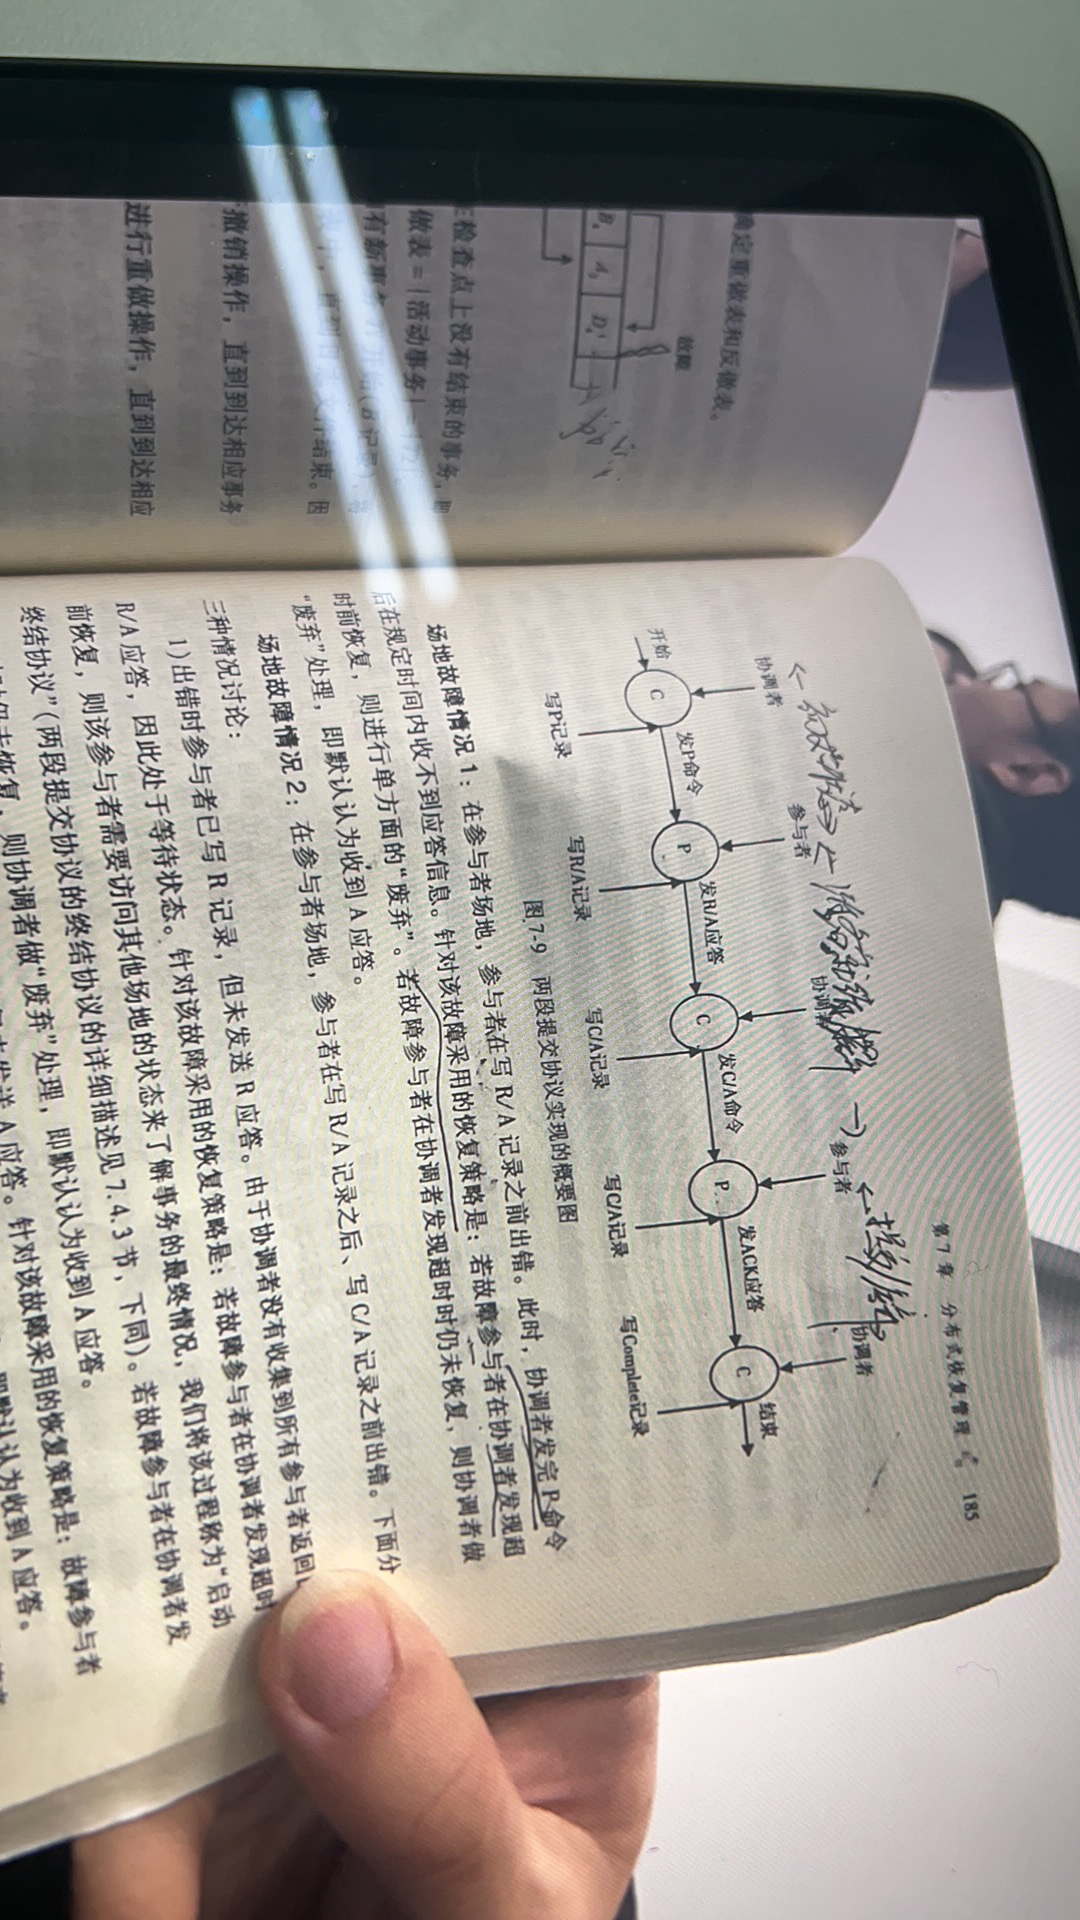 确定重做表和反做表。
故障
B₁ A₃ D₄
检查点上没有结束的事务,即
做表=|活动事务|
撤销操作,直到到达相应事务
进行重做操作,直到到达相应
第7章 分布式恢复管理 185
协调者 参与者 协调者 参与者 协调者
开始 C 发P命令 P 发R/A应答 C 发C/A命令 P 发ACK应答 C 结束
写P记录 写R/A记录 写C/A记录 写C/A记录 写Complete记录
图7-9 两段提交协议实现的概要图
场地故障情况1:在参与者场地,参与者在写R/A记录之前出错。此时,协调者发完P命令
后在规定时间内收不到应答信息。针对该故障采用的恢复策略是:若故障参与者在协调者发现超
时前恢复,则进行单方面的“废弃”。若故障参与者在协调者发现超时时仍未恢复,则协调者做
“废弃”处理,即默认认为收到A应答。
场地故障情况2:在参与者场地,参与者在写R/A记录之后、写C/A记录之前出错。下面分
三种情况讨论:
1)出错时参与者已写R记录,但未发送R应答。由于协调者没有收集到所有参与者返回
R/A应答,因此处于等待状态。针对该故障采用的恢复策略是:若故障参与者在协调者发现超时
前恢复,则该参与者需要访问其他场地的状态来了解事务的最终情况,我们将该过程称为“启动
终结协议”(两段提交协议的终结协议的详细描述见7.4.3节,下同)。若故障参与者在协调者发
仍未恢复,则协调者做“废弃”处理,即默认认为收到A应答。
A应答。针对该故障采用的恢复策略是:故障参与者
即默认认为收到A应答。